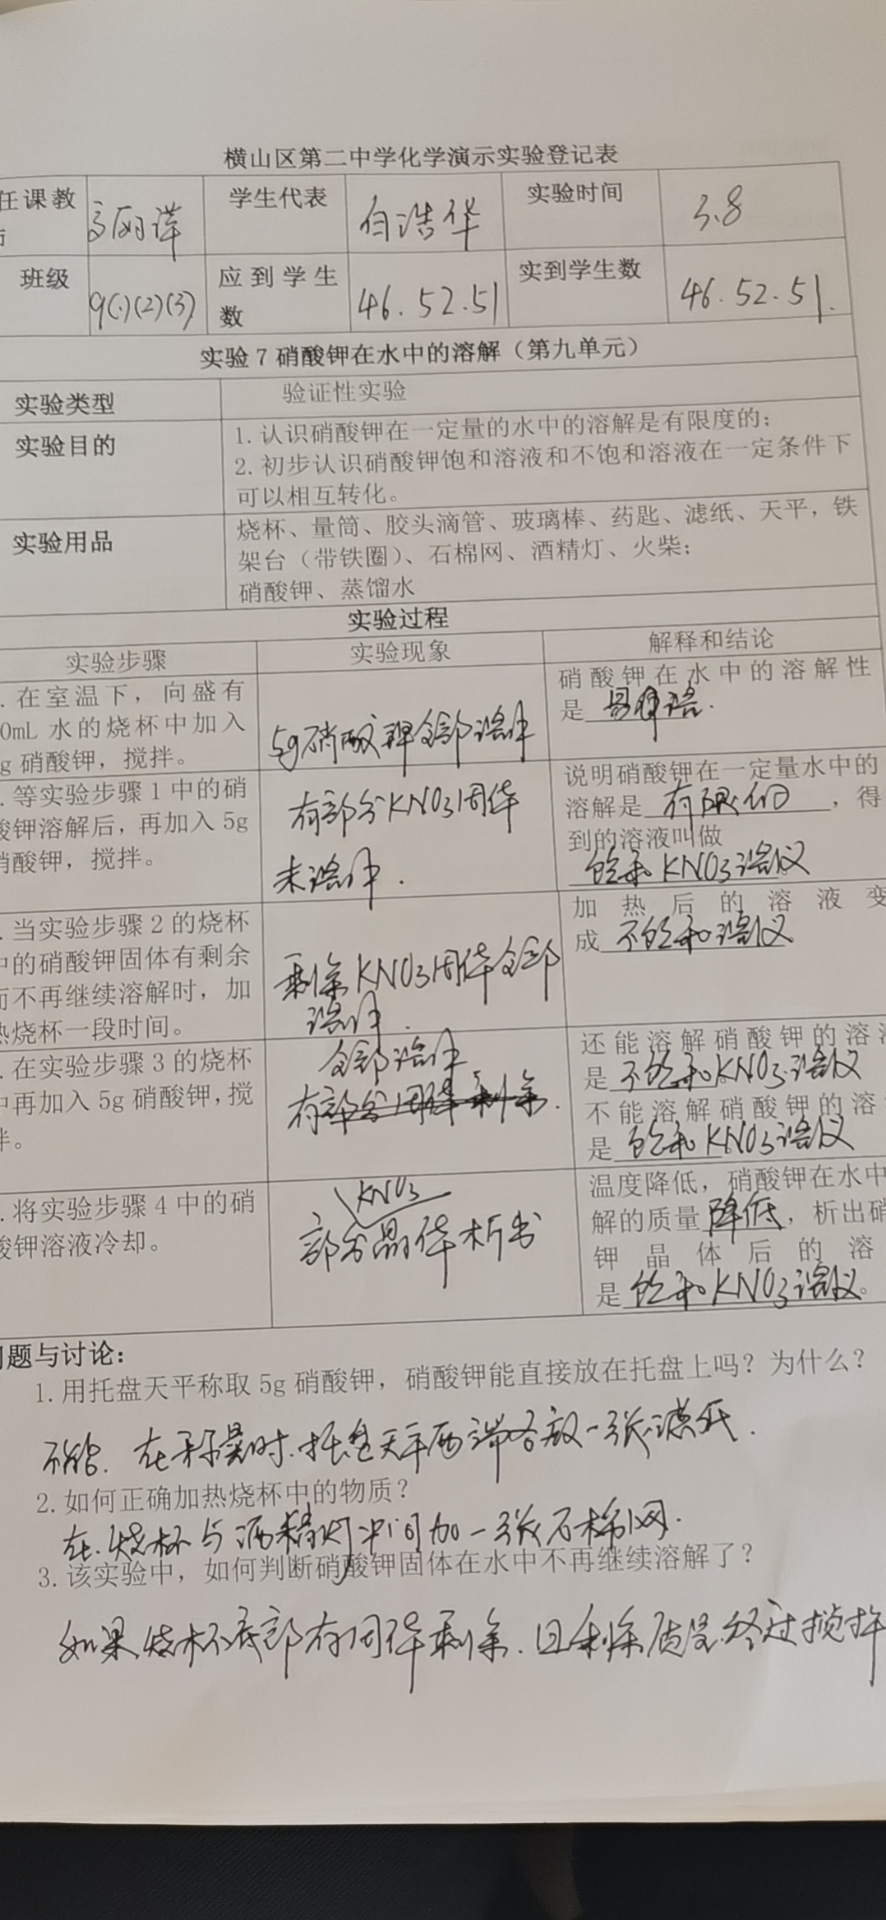 横山区第二中学化学演示实验登记表
任课教
学生代表 白浩华 实验时间 3.8
班级 9(1)(2)(3) 应到学生
数 46.52.51 实到学生数 46.52.51.
实验7 硝酸钾在水中的溶解（第九单元）
实验类型 验证性实验
实验目的 1.认识硝酸钾在一定量的水中的溶解是有限度的；
2.初步认识硝酸钾饱和溶液和不饱和溶液在一定条件下
可以相互转化。
实验用品 烧杯、量筒、胶头滴管、玻璃棒、药匙、滤纸、天平，铁
架台（带铁圈）、石棉网、酒精灯、火柴；
硝酸钾、蒸馏水
实验过程
实验步骤 实验现象 解释和结论
.在室温下，向盛有
0mL 水的烧杯中加入
g 硝酸钾，搅拌。
5g硝酸钾全部溶解
硝酸钾在水中的溶解性
是 易溶.
.等实验步骤1中的硝
酸钾溶解后，再加入5g
硝酸钾，搅拌。
有部分KNO3固体
未溶解.
说明硝酸钾在一定量水中的
溶解是 有限的 ，得
到的溶液叫做
饱和KNO3溶液
.当实验步骤2的烧杯
中的硝酸钾固体有剩余
而不再继续溶解时，加
热烧杯一段时间。
剩余KNO3固体全部
溶解.
加热后的溶液变
成 不饱和溶液
.在实验步骤3的烧杯
中再加入5g硝酸钾，搅
拌。
全部溶解
有部分固体剩余.
还能溶解硝酸钾的溶液
是 不饱和KNO3溶液
不能溶解硝酸钾的溶
是 饱和KNO3溶液
.将实验步骤4中的硝
酸钾溶液冷却。
KNO3
部分晶体析出
温度降低，硝酸钾在水中
解的质量 降低，析出硝
钾晶体后的溶
是 饱和KNO3溶液。
问题与讨论：
1.用托盘天平称取5g硝酸钾，硝酸钾能直接放在托盘上吗？为什么？
不能.在称量时.托盘天平两端各放一张滤纸.
2.如何正确加热烧杯中的物质？
在烧杯与酒精灯中间加一张石棉网.
3.该实验中，如何判断硝酸钾固体在水中不再继续溶解了？
如果烧杯底部有固体剩余.且剩余质量经过搅拌